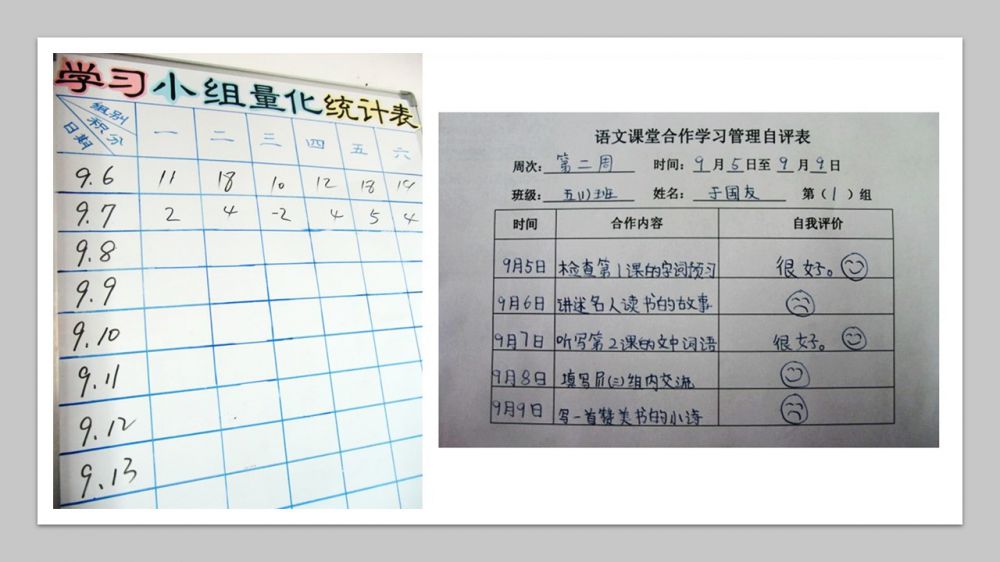 学习小组量化统计表
组别 积分 日期 一 二 三 四 五 六
9.6 11 18 10 12 18 19
9.7 2 4 -2 4 5 4
9.8
9.9
9.10
9.11
9.12
9.13
语文课堂合作学习管理自评表
周次:第二周 时间:9月5日至9月9日
班级:五(1)班 姓名:于国友 第(1)组
时间 合作内容 自我评价
9月5日 检查第1课的字词预习 很好。
9月6日 讲述名人读书的故事
9月7日 听写第2课的文中词语 很好。
9月8日 填写 (三)组内交流
9月9日 写一首赞美书的小诗